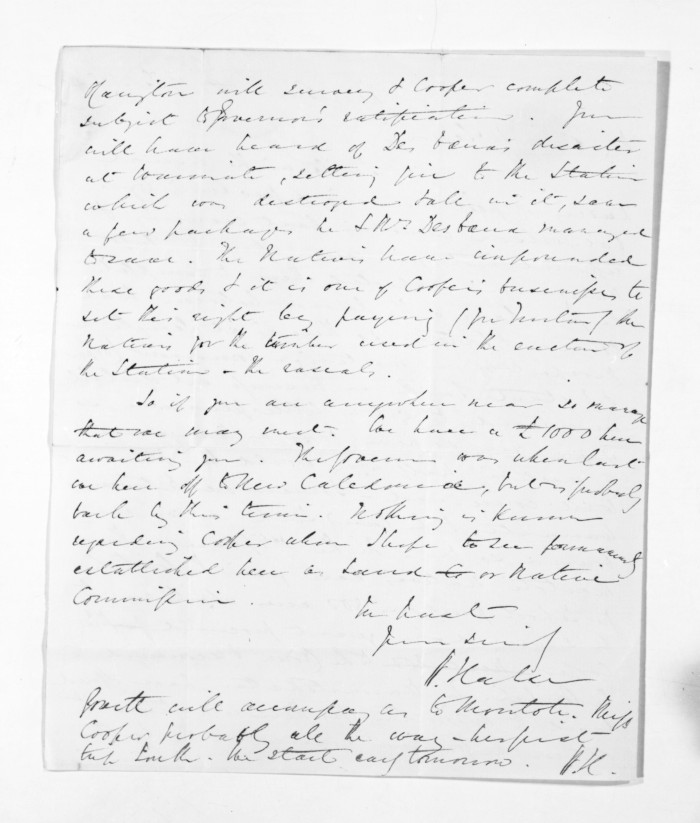 will survey & Cooper complete
subject to Governor's ratification. You
will have heard of Des disaster
at, setting fire to the Station
which was destroyed & all in it, save
a few packages he & Mrs Des managed
to save. The Natives have impounded
these goods & it is one of Cooper's businesses to
set this right by paying the
Natives for the timber used in the erection of
the Station - the rascals.
So if you are anywhere near so manage
that we may meet. We have a £1000 here
awaiting you. The Governor was when last
we here off to New Caledonia, but is probably
back by this time. Nothing is known
regarding Cooper whom I hope to see permanently
established here as Land or Native
Commissr.
In haste
Yours
H. Halse
will accompany us to Miss
Cooper probably all the way -
South. We start early tomorrow. H.H.